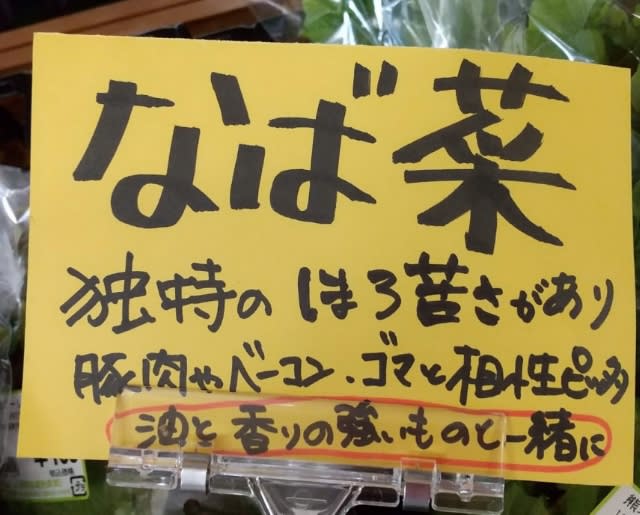 なば菜
独特のほろ苦さがあり
豚肉やベーコン、ゴマと相性ピッタリ
油と香りの強いものと一緒に